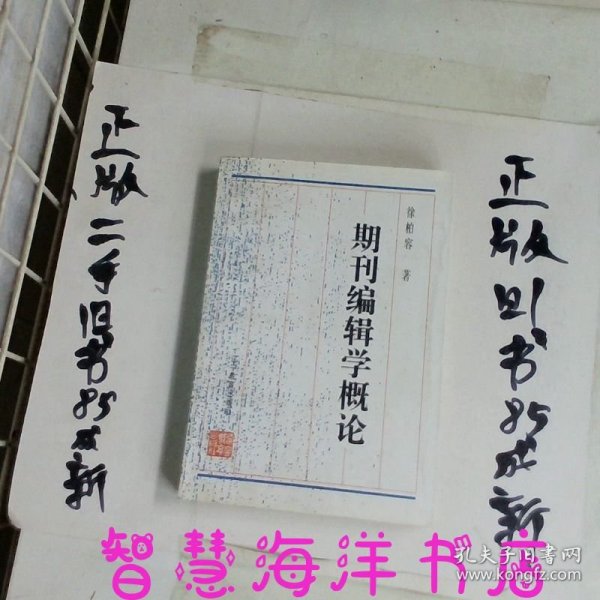 正版二手旧书85成新
徐柏容 著
期刊编辑学概论
正版旧书85成新
智慧海洋书店
孔夫子旧书网
www.kongfz.com